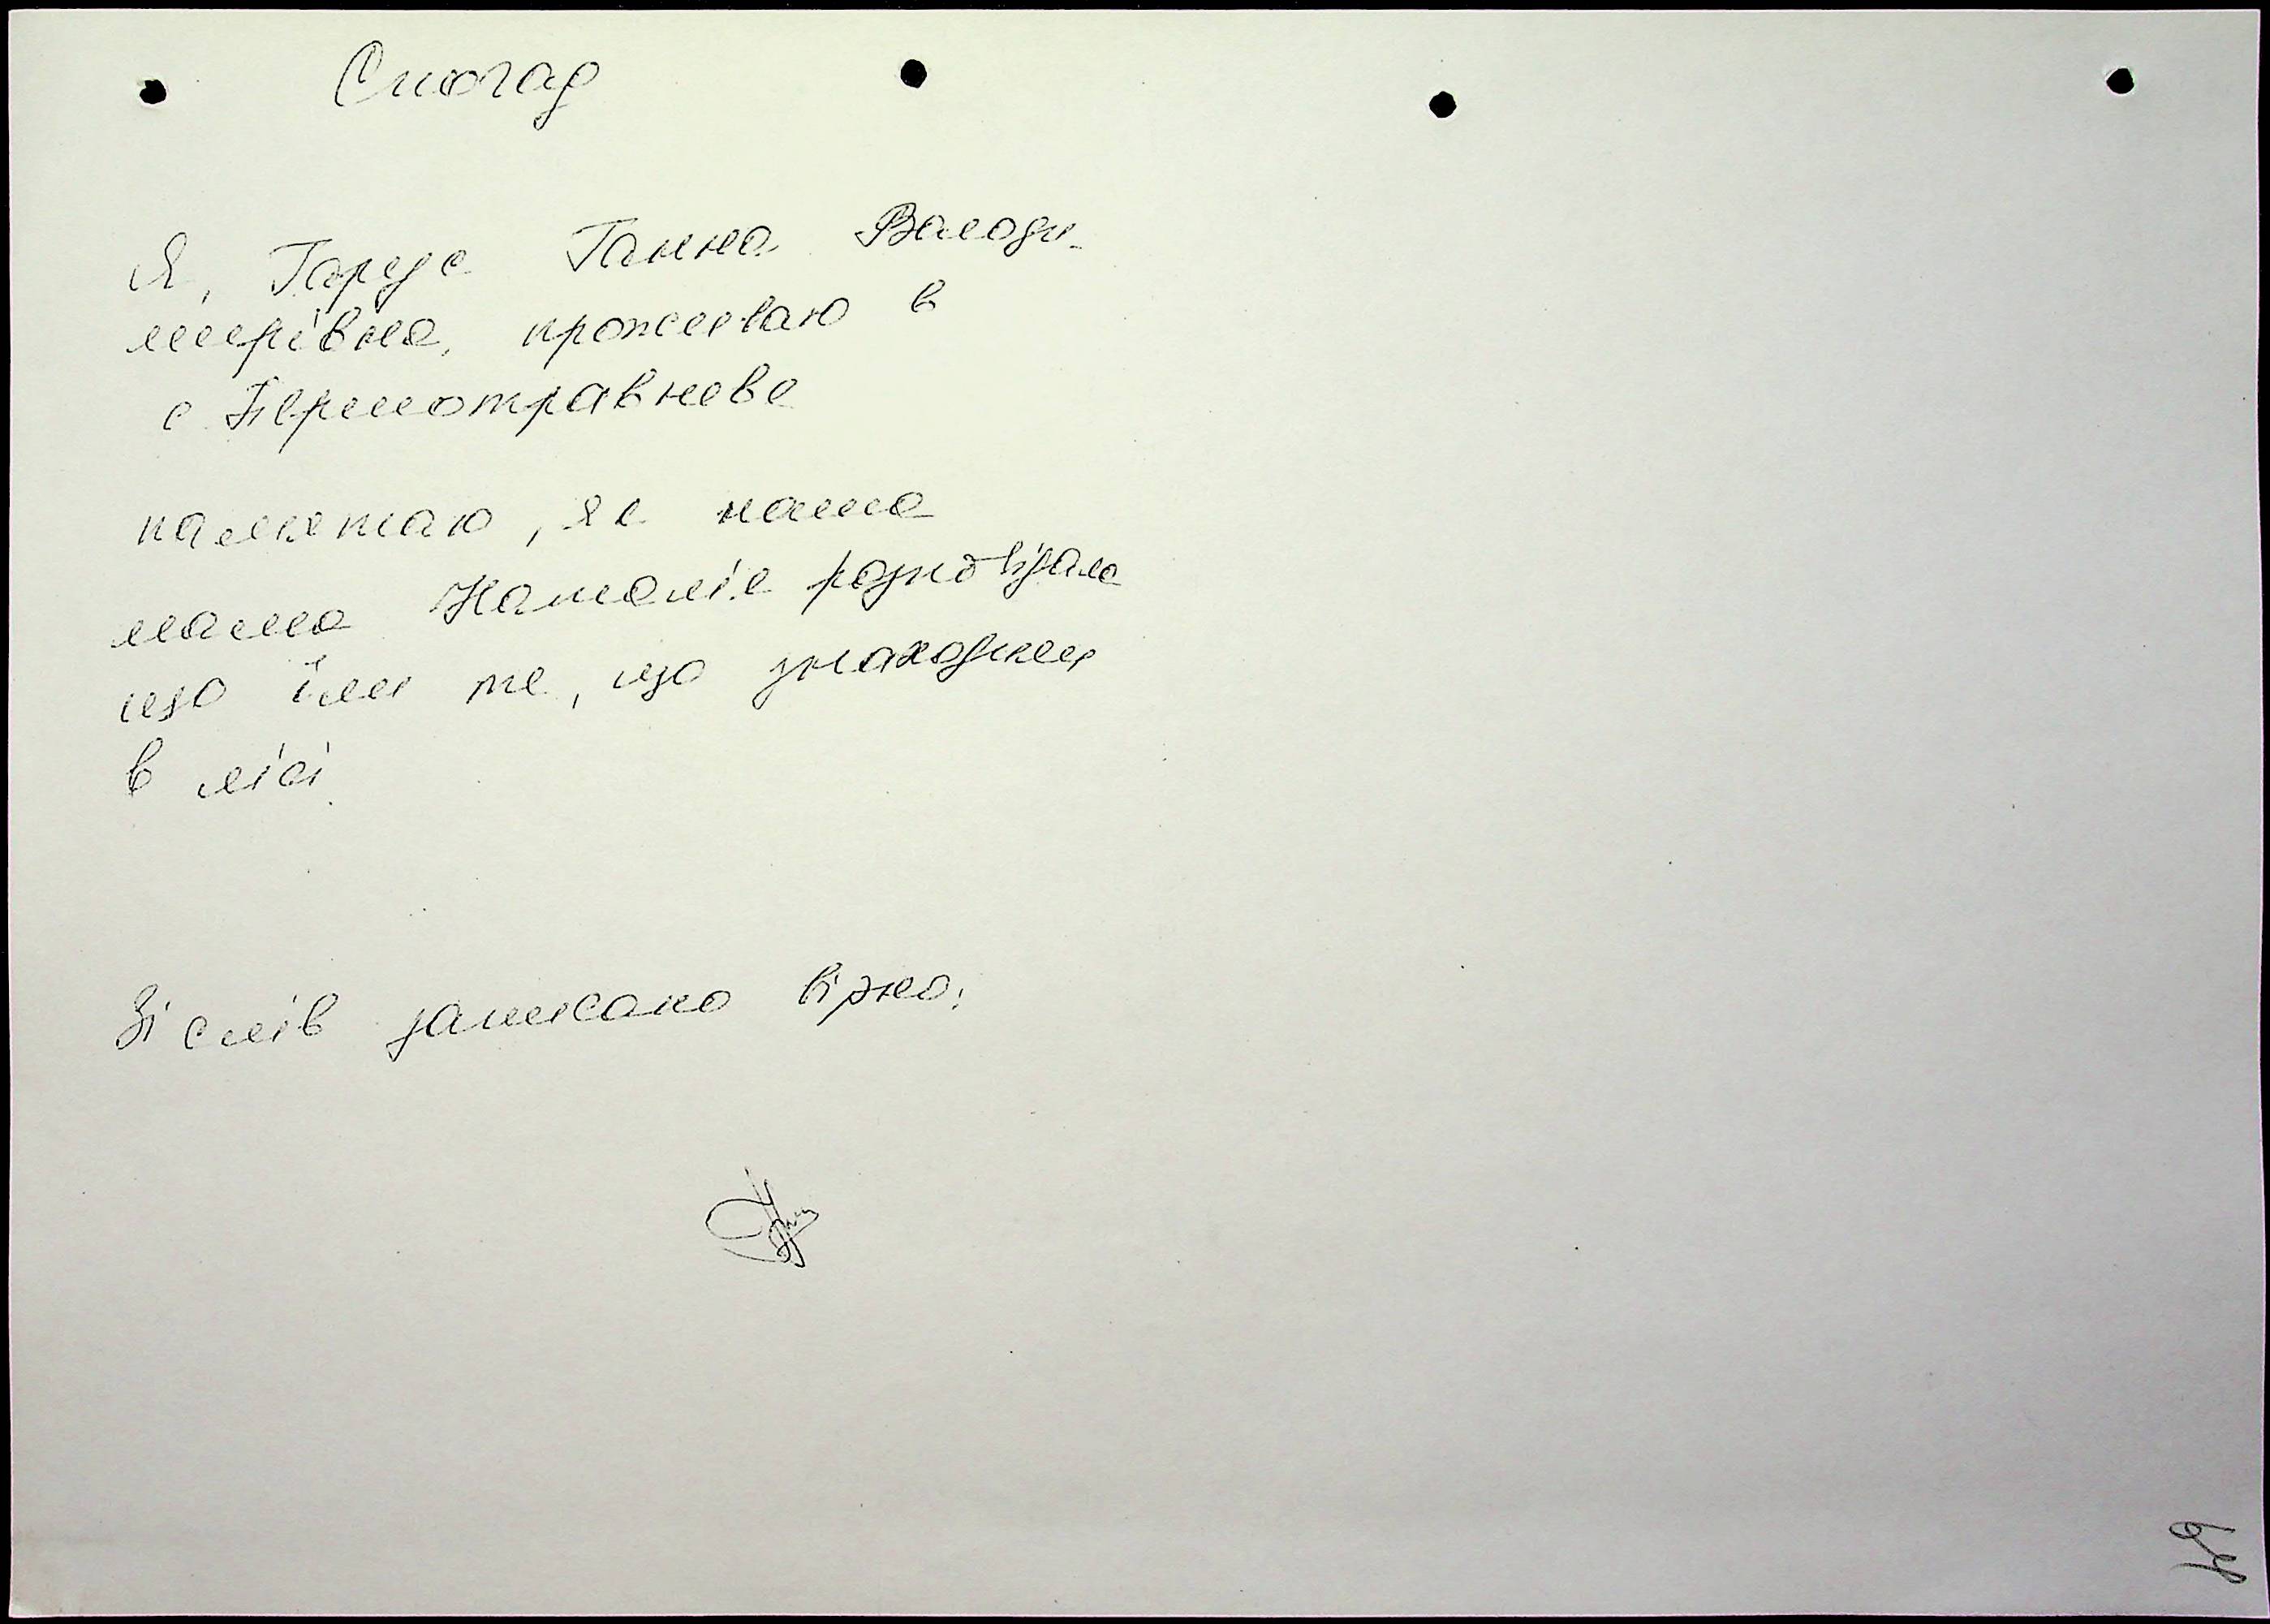 Спогад
Я, Гарус Ганна Володи-
мирівна, проживаю в
с Першотравневе
памятаю, як наша
мама Наталія розповідала
що їли те, що знаходили
в лісі.
Зі слів записано вірно: